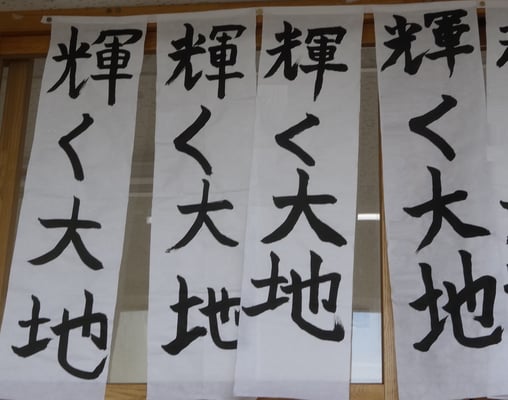 輝く大地
輝く大地
輝く大地
輝く大地